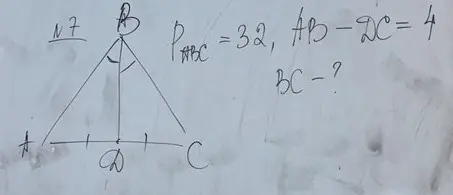 №7
B
P ABC = 32, AB - DC = 4
BC - ?
A
D
C